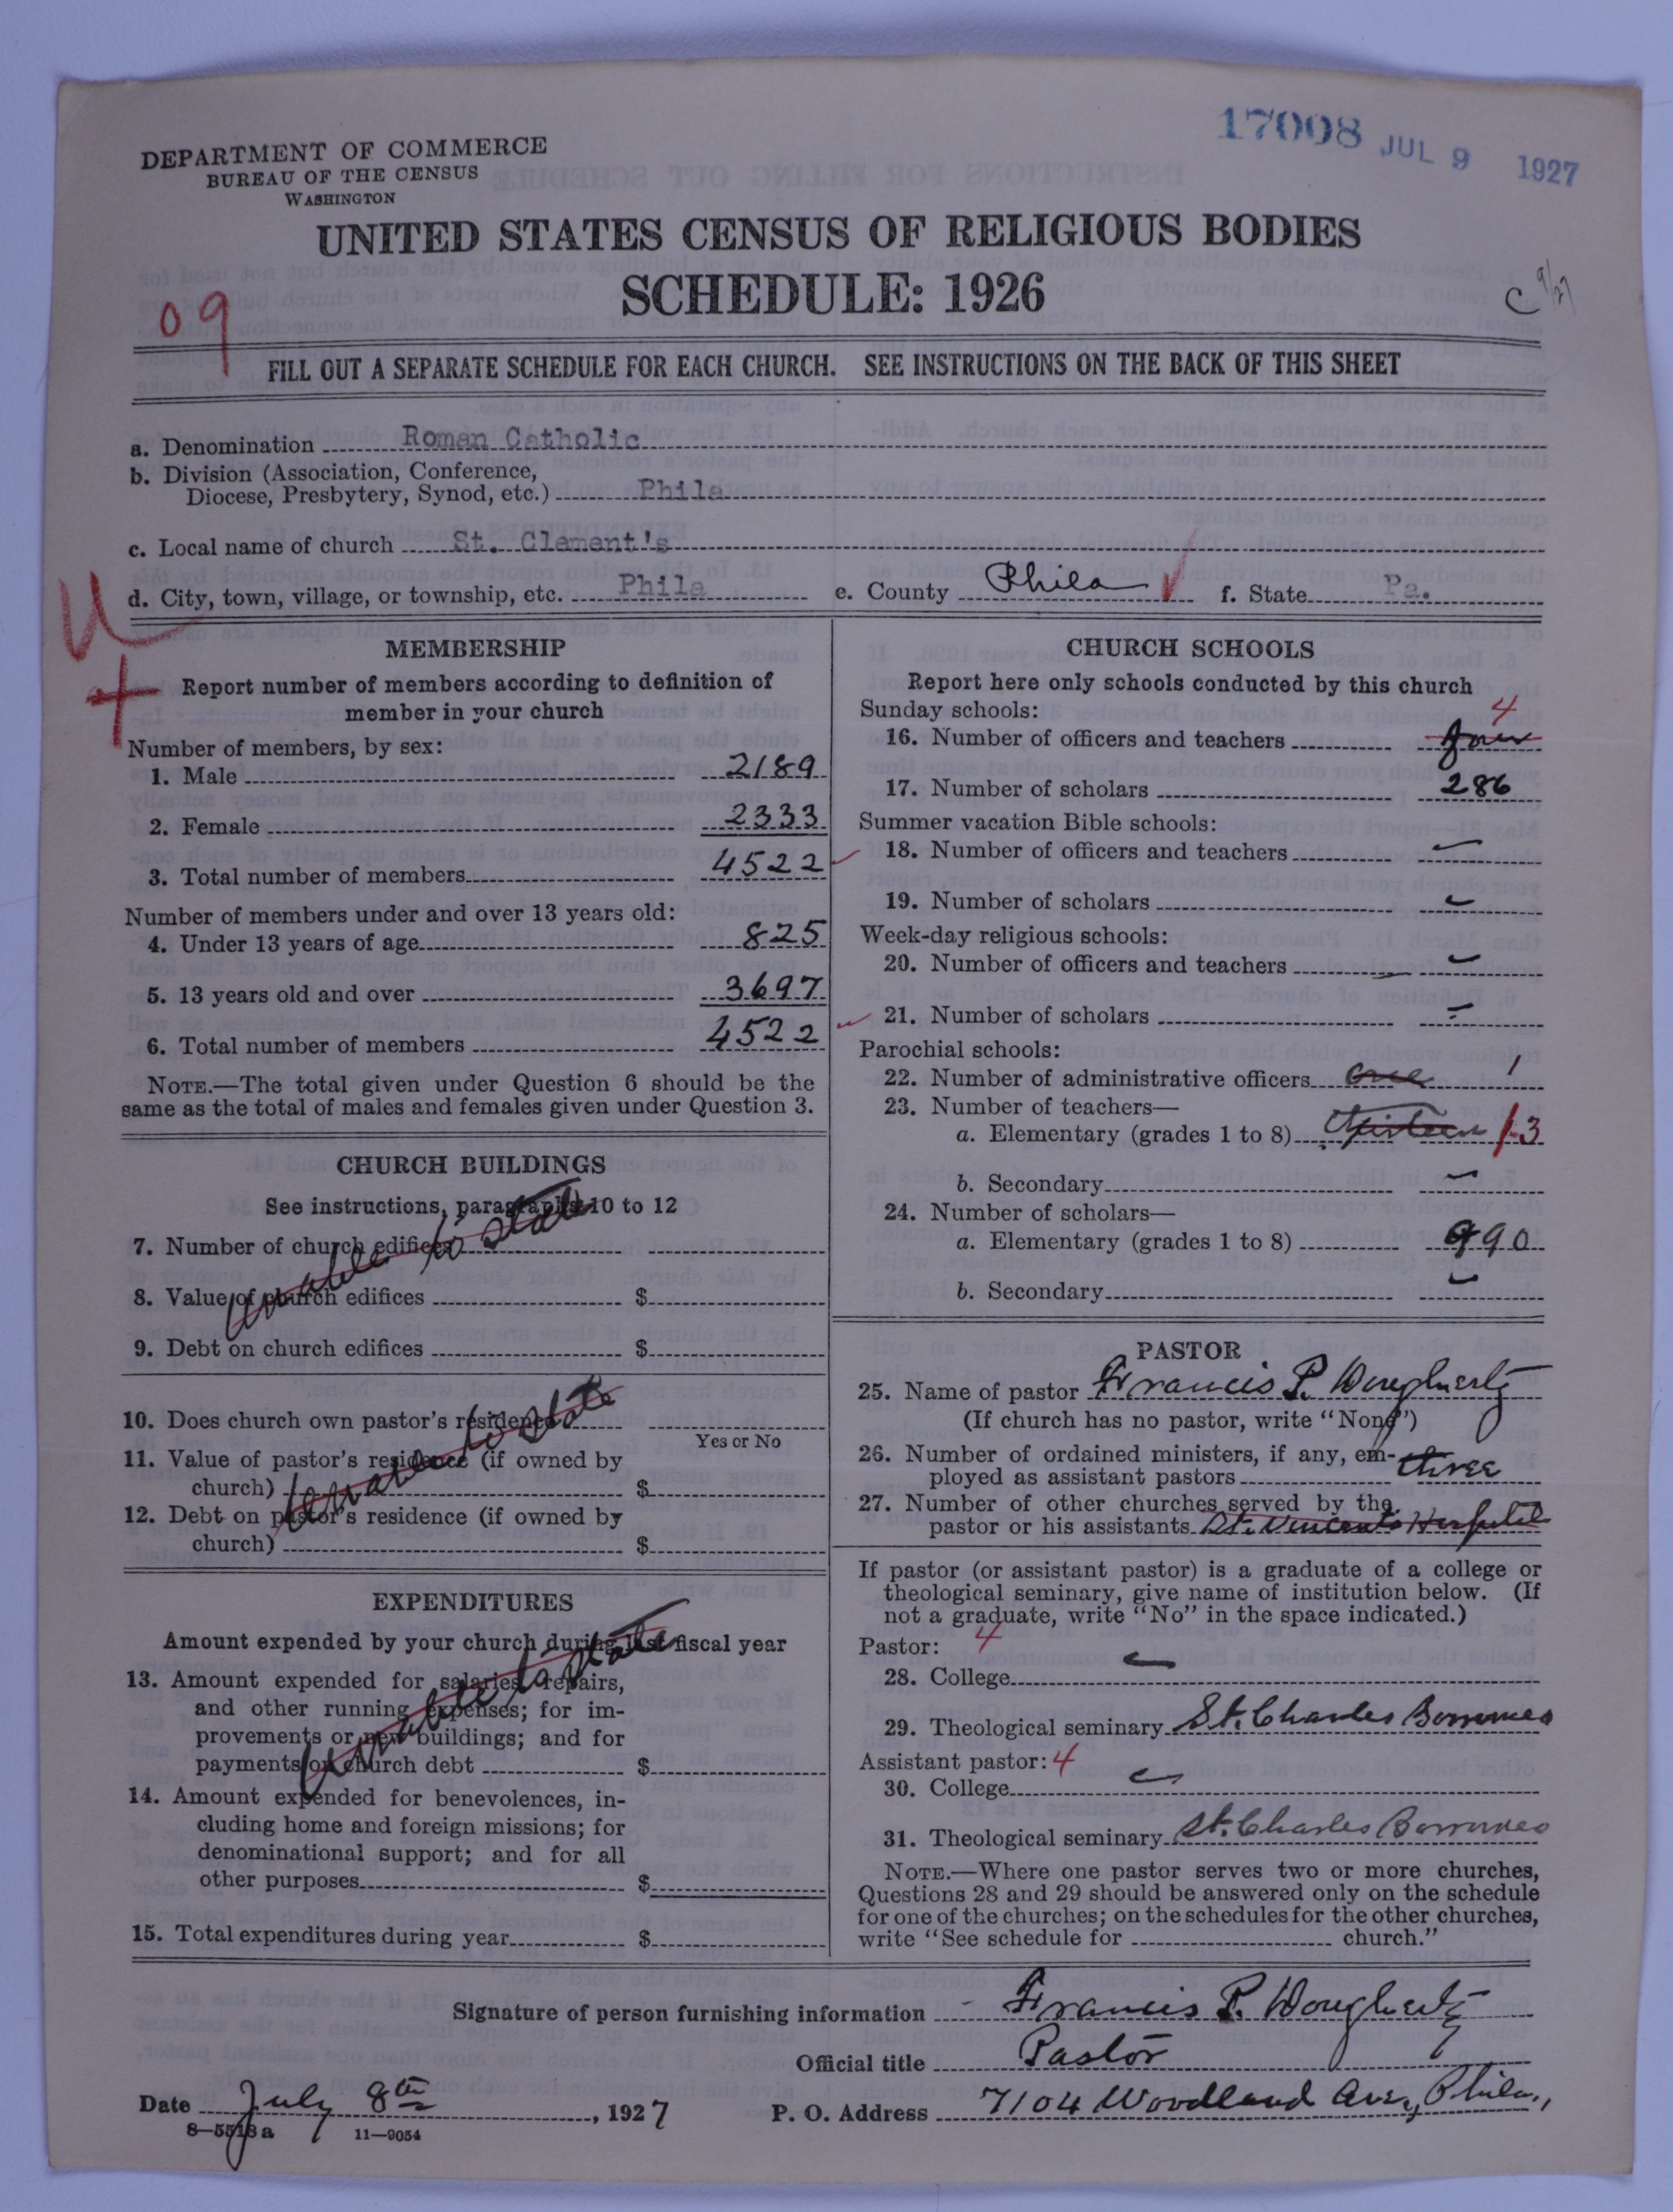 17008 JUL 9 1927
DEPARTMENT OF COMMERCE
BUREAU OF THE CENSUS
WASHINGTON
UNITED STATES CENSUS OF RELIGIOUS BODIES
SCHEDULE: 1926
C 9/27
09
FILL OUT A SEPARATE SCHEDULE FOR EACH CHURCH. SEE INSTRUCTIONS ON THE BACK OF THIS SHEET
a. Denomination Roman Catholic
b. Division (Association, Conference,
Diocese, Presbytery, Synod, etc.) Phila
c. Local name of church St. Clement's
d. City, town, village, or township, etc. Phila e. County Phila f. State Pa.
MEMBERSHIP
Report number of members according to definition of
member in your church
Number of members, by sex:
1. Male 2189
2. Female 2333
3. Total number of members 4522
Number of members under and over 13 years old:
4. Under 13 years of age 825
5. 13 years old and over 3697
6. Total number of members 4522
NOTE.—The total given under Question 6 should be the
same as the total of males and females given under Question 3.
CHURCH BUILDINGS
See instructions, paragraphs 10 to 12
7. Number of church edifices
Unable to state
8. Value of church edifices $
9. Debt on church edifices $
10. Does church own pastor's residence
Yes or No
Unable to state
11. Value of pastor's residence (if owned by
church) $
12. Debt on pastor's residence (if owned by
church) $
EXPENDITURES
Amount expended by your church during last fiscal year
Unable to state
13. Amount expended for salaries, repairs,
and other running expenses; for im-
provements or new buildings; and for
payments on church debt $
14. Amount expended for benevolences, in-
cluding home and foreign missions; for
denominational support; and for all
other purposes $
15. Total expenditures during year $
CHURCH SCHOOLS
Report here only schools conducted by this church
Sunday schools: 4
16. Number of officers and teachers four
17. Number of scholars 286
Summer vacation Bible schools:
18. Number of officers and teachers —
19. Number of scholars —
Week-day religious schools:
20. Number of officers and teachers —
21. Number of scholars —
Parochial schools:
22. Number of administrative officers one 1
23. Number of teachers—
a. Elementary (grades 1 to 8) thirteen 13
b. Secondary —
24. Number of scholars—
a. Elementary (grades 1 to 8) 990
b. Secondary —
PASTOR
25. Name of pastor Francis P. Dougherty
(If church has no pastor, write "None")
26. Number of ordained ministers, if any, em-
ployed as assistant pastors three
27. Number of other churches served by the
pastor or his assistants St. Vincent's Hospital
If pastor (or assistant pastor) is a graduate of a college or
theological seminary, give name of institution below. (If
not a graduate, write "No" in the space indicated.)
Pastor: 4
28. College —
29. Theological seminary St. Charles Borromeo
Assistant pastor: 4
30. College —
31. Theological seminary St. Charles Borromeo
NOTE.—Where one pastor serves two or more churches,
Questions 28 and 29 should be answered only on the schedule
for one of the churches; on the schedules for the other churches,
write "See schedule for church."
Signature of person furnishing information Francis P. Dougherty
Official title Pastor
Date July 8th, 1927 P. O. Address 7104 Woodland Ave., Phila.,
8—5518a 11—9054